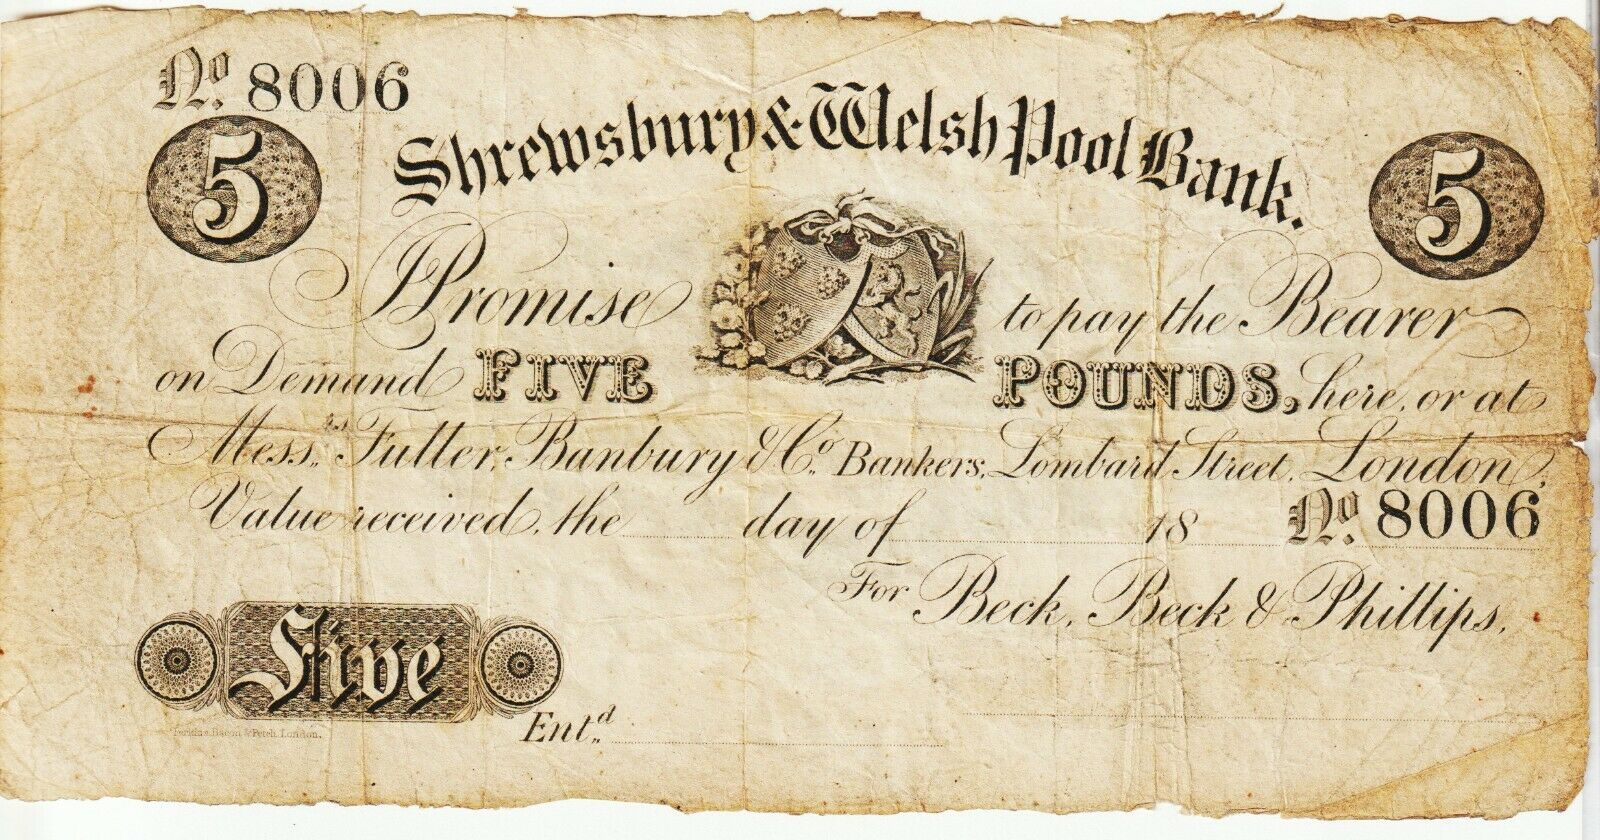 No. 8006
Shrewsbury & Welsh Pool Bank.
5 5
I Promise to pay the Bearer
on Demand FIVE POUNDS, here, or at
Mess.rs Fuller, Banbury & Co. Bankers, Lombard Street, London,
Value received, the day of 18 No. 8006
For Beck, Beck & Phillips,
Five
Ent.d
Perkins, Bacon & Petch, London.